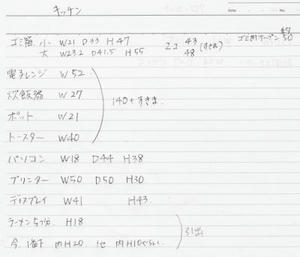 キッチン
ゴミ箱 小 W21 D43 H47
大 W23.2 D41.5 H55
ココ 43
48
ゴミ用オープン 50
電子レンジ W52
炊飯器 W27
ポット W21
トースター W40
140+すきま
パソコン W18 D44 H38
プリンター W50 D50 H30
ディスプレイ W41 H43
ラーメン5コ分 H18
今、1番下 内H20 他 内H10ぐらい
引出